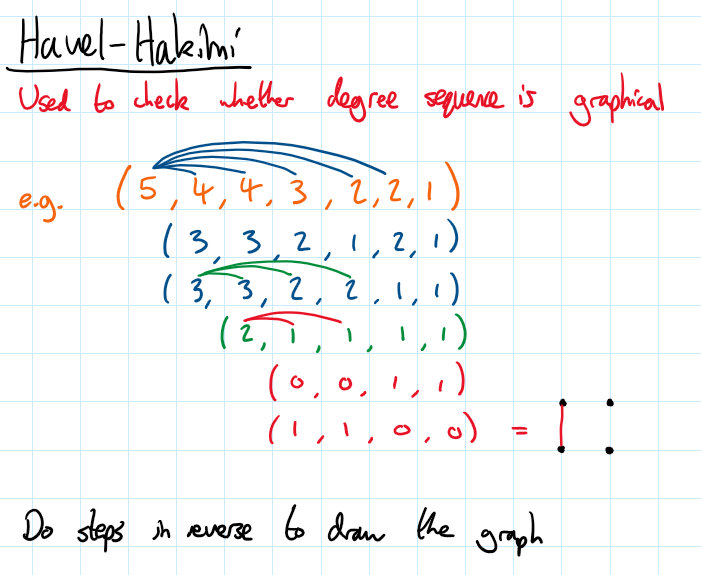 Havel-Hakimi
Used to check whether degree sequence is graphical
e.g. (5, 4, 4, 3, 2, 2, 1)
(3, 3, 2, 1, 2, 1)
(3, 3, 2, 2, 1, 1)
(2, 1, 1, 1, 1)
(0, 0, 1, 1)
(1, 1, 0, 0) =
Do steps in reverse to draw the graph